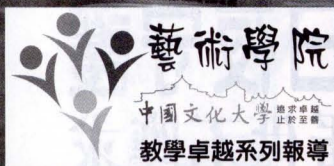 藝術學院
中國文化大學 追求卓越
止於至善
教學卓越系列報導